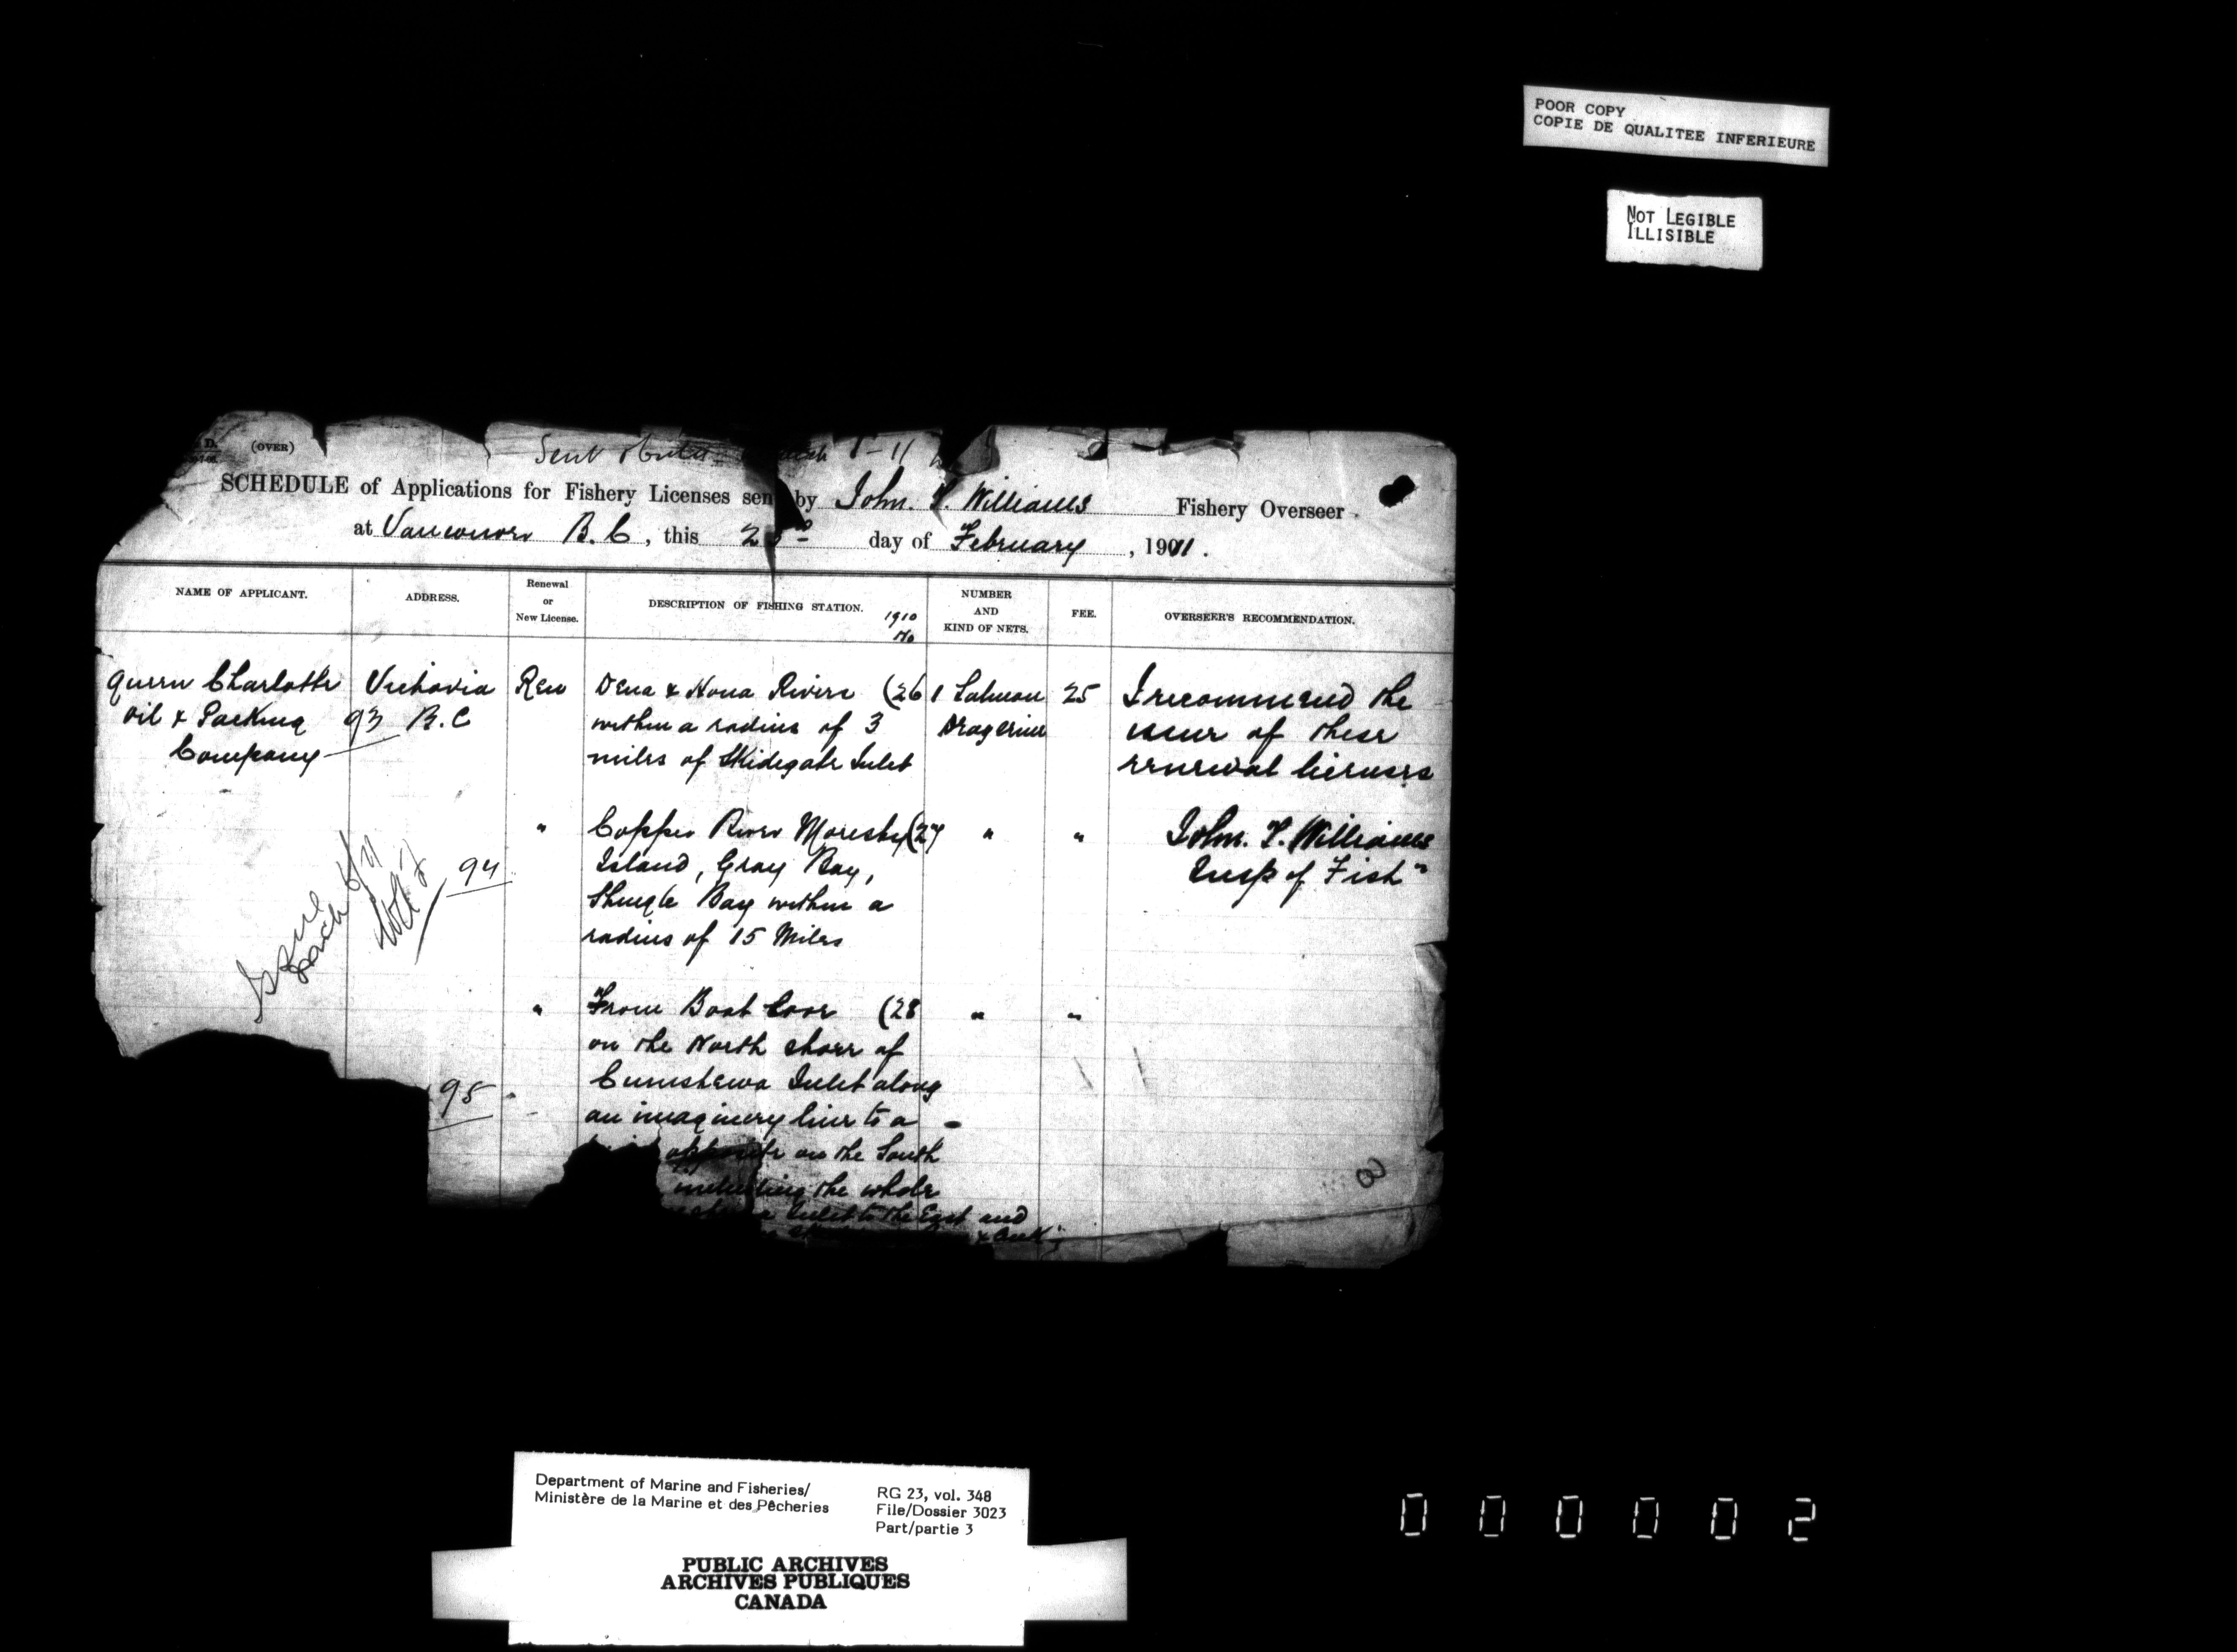 POOR COPY
COPIE DE QUALITEE INFERIEURE
NOT LEGIBLE
ILLISIBLE
D. (OVER)
Sent 1-11
SCHEDULE of Applications for Fishery Licenses sen by John. T. Williams Fishery Overseer.
at Vancouver B.C, this 2 day of February, 1911.
NAME OF APPLICANT.
ADDRESS.
Renewal
or
New License.
DESCRIPTION OF FISHING STATION.
1910
No
NUMBER
AND
KIND OF NETS.
FEE.
OVERSEER'S RECOMMENDATION.
Queen Charlotte Victoria Ren Dena & Nona Rivers (26 1 Salmon 25 I recommend the
Oil & Packing 93 B.C within a radius of 3 Dragseine issue of these
Company miles of Skidegate Inlet renewal licenses
" Copper River Moresby (27 " " John. T. Williams
94 Island, Gray Bay, Insp of Fish
Shingle Bay within a
radius of 15 Miles
Issue
March 6/11
" From Boat Cove (28 " "
on the North shore of
95 Cumshewa Inlet along
an imaginery line to a
opposite on the South
including the whole
Inlet to the East and
PUBLIC ARCHIVES
ARCHIVES PUBLIQUES
CANADA
Department of Marine and Fisheries/
Ministère de la Marine et des Pêcheries
RG 23, vol. 348
File/Dossier 3023
Part/partie 3
000002